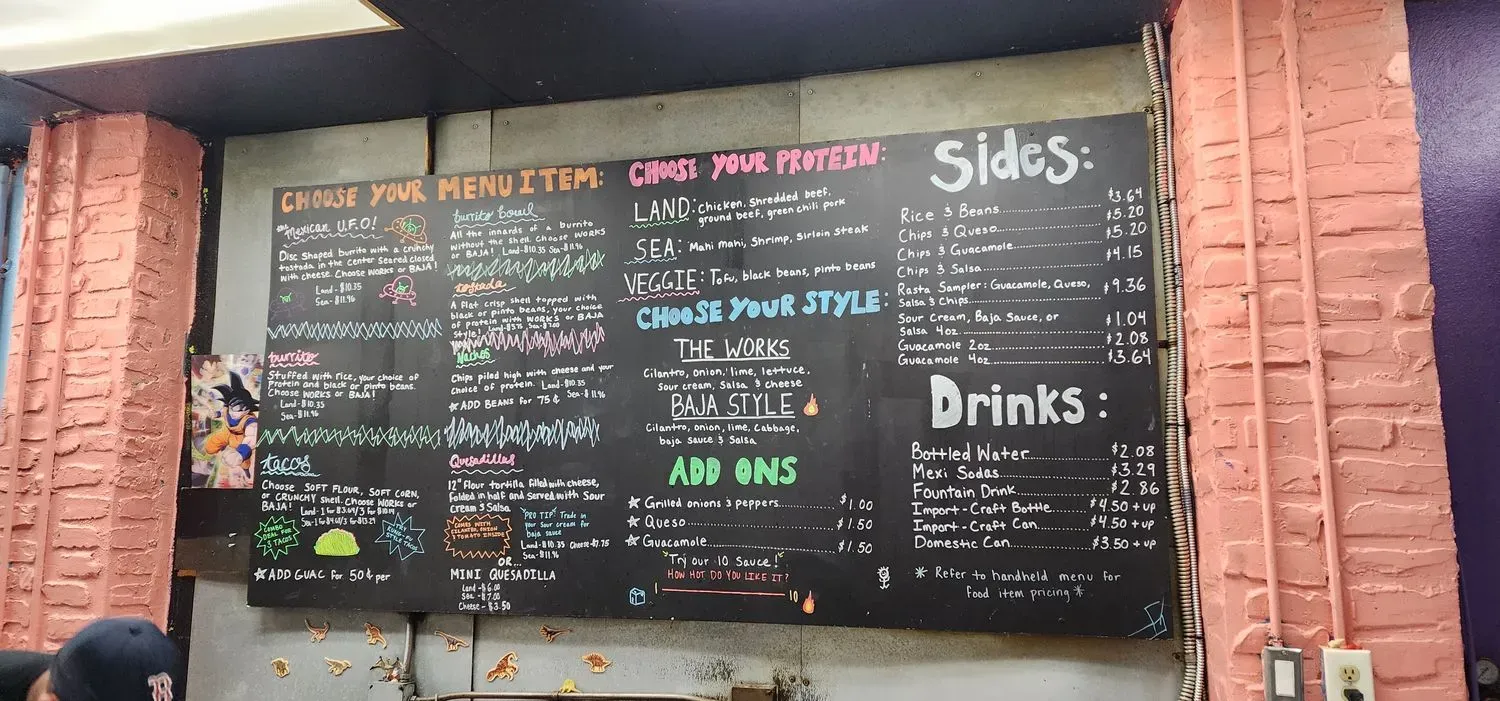 CHOOSE YOUR MENU ITEM:
the Mexican U.F.O!
Disc Shaped burrito with a crunchy
tostada in the center Seared closed
with cheese. Choose WORKS or BAJA!
Land - $10.35
Sea - $11.96
burrito
Stuffed with rice, your choice of
Protein and black or pinto beans.
Choose WORKS or BAJA!
Land - $10.35
Sea - $11.96
tacos
Choose SOFT FLOUR, SOFT CORN,
or CRUNCHY shell. Choose WORKS or
BAJA!
COMBO
DEAL FOR
3 TACOS
KUNG-FU
STYLE TACOS
ADD GUAC for 50¢ per
burrito bowl
All the innards of a burrito
without the shell. Choose WORKS
or BAJA! Land - $10.35 Sea - $11.96
tostada
A flat crisp shell topped with
black or pinto beans, your choice
of protein with WORKS or BAJA
Style!
Nachos
Chips piled high with cheese and your
choice of protein. Land - $10.35
Sea - $11.96
ADD BEANS for 75¢
Quesadillas
12" flour tortilla filled with cheese,
Folded in half and served with Sour
cream & Salsa
COMES WITH
CILANTRO, ONION
& TOMATO INSIDE
PRO TIP: Trade in
your Sour cream for
baja sauce
Land - $10.35 Cheese - $7.75
Sea - $11.96
OR...
MINI QUESADILLA
Land - $6.00
Sea - $7.00
Cheese - $3.50
CHOOSE YOUR PROTEIN:
LAND: chicken, Shredded beef,
ground beef, green chili pork
SEA: Mahi mahi, Shrimp, Sirloin Steak
VEGGIE: Tofu, black beans, pinto beans
CHOOSE YOUR STYLE:
THE WORKS
Cilantro, onion, lime, lettuce,
Sour cream, Salsa & cheese
BAJA STYLE
Cilantro, onion, lime, Cabbage,
baja sauce & Salsa
ADD ONS
Grilled onions & peppers $1.00
Queso $1.50
Guacamole $1.50
Try our 10 Sauce!
HOW HOT DO YOU LIKE IT?
1 10
Sides:
Rice & Beans $3.64
Chips & Queso $5.20
Chips & Guacamole $5.20
Chips & Salsa $4.15
Rasta Sampler: Guacamole, Queso,
Salsa & Chips $9.36
Sour Cream, Baja Sauce, or
Salsa 4oz $1.04
Guacamole 2oz $2.08
Guacamole 4oz $3.64
Drinks:
Bottled Water $2.08
Mexi Sodas $3.29
Fountain Drink $2.86
Import-Craft Bottle $4.50 + up
Import-Craft Can $4.50 + up
Domestic Can $3.50 + up
* Refer to handheld menu for
food item pricing *